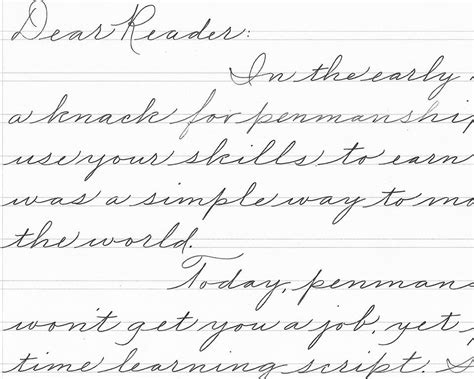 Dear Reader:
In the early
a knack for penmanship
use your skills to earn
was a simple way to
the world.
Today,
won't get you a job, yet
time learning script.